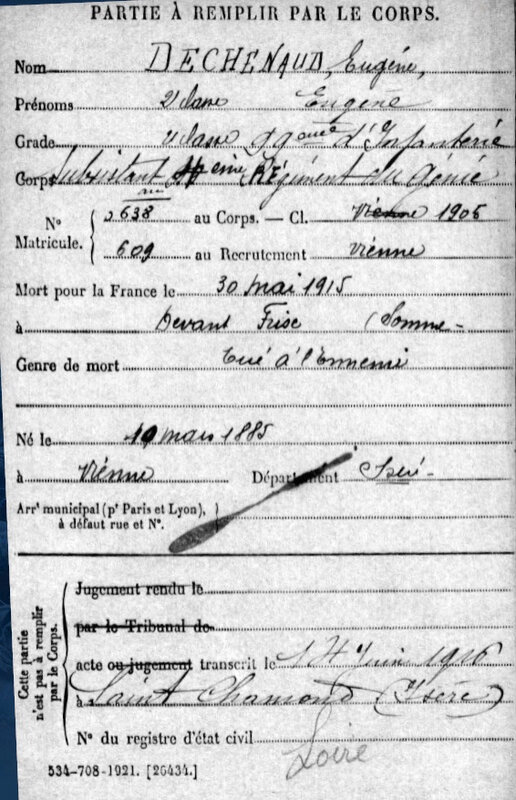 PARTIE À REMPLIR PAR LE CORPS.
Nom DECHENAUD, Eugéne,
Prénoms 2e classe Eugéne
Grade 2e classe 99eme d'Infanterie
Corps Subsistant au 4eme Régiment du Génie
N° Matricule. 5638 au Corps. — Cl. Vienne 1905
609 au Recrutement Vienne
Mort pour la France le 30 mai 1915
à Devant Frise (Somme-
Genre de mort tué à l'Ennemi
Né le 19 mars 1885
à Vienne Département Iseré-
Arrt municipal (pr Paris et Lyon),
à défaut rue et N°.
Cette partie n'est pas à remplir par le Corps.
Jugement rendu le
par le Tribunal de
acte ou jugement transcrit le 14 Juin 1916
à Saint Chamond (Isere)
N° du registre d'état civil
Loire
534-708-1921. [26434.]